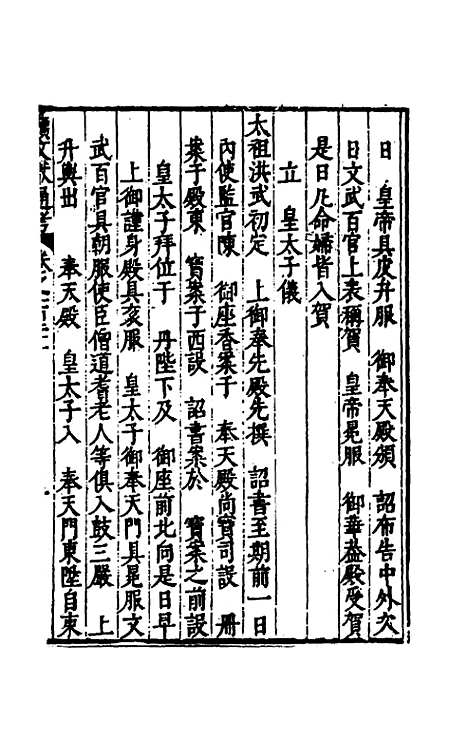 日　皇帝具皮弁服　御奉天殿頒　詔布告中外次
日文武百官上表稱賀　皇帝冕服　御華葢殿受賀
是日凡命婦皆入賀
立　皇太子儀
太祖洪武初定　上御奉先殿先撰　詔書至期前一日
內使監官陳　御座香案于　奉天殿尚寳司設　冊
案于殿東　寳案于西設　詔書案於　寳案之前設
皇太子拜位于　丹陛下及　御座前北向是日早
上御謹身殿具衮服　皇太子御奉天門具冕服文
武百官具朝服使臣僧道耆老人等俱入鼓三嚴　上
升輿出　奉天殿　皇太子入　奉天門東陞自東
續文獻通考